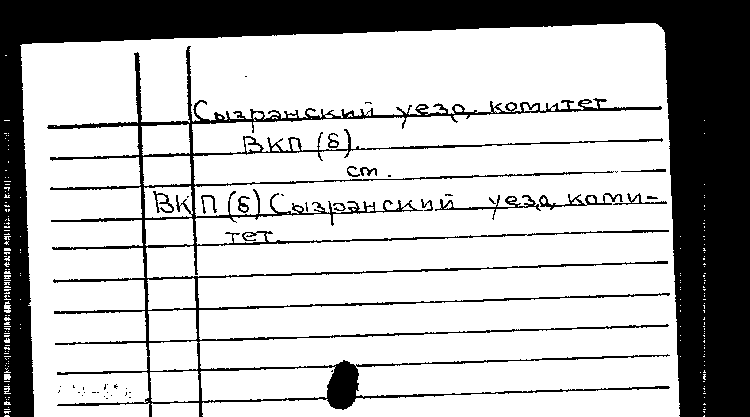 Сызранский уезд. комитет
ВКП (б).
см.
ВКП (б) Сызранский уезд. коми-
тет.